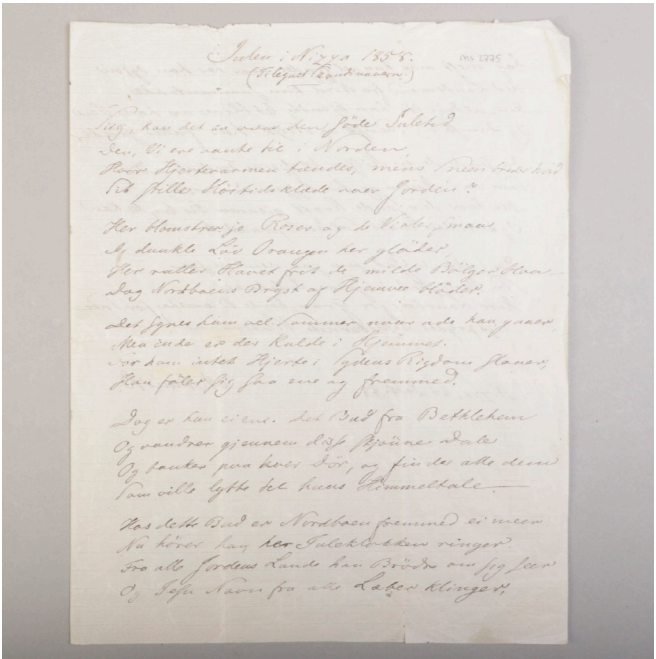 Julen i Nizza 1858.
MS 3775
(Tilegnet Skandinaverne)
Siig, kan det da være den søde Juletid
Den, Vi ere vante til i Norden
Hvor Hjertevarmen tændes, mens Sneen hvid
Sit stille Høitidsklæde over Jorden?
Her blomstrer jo Roser og de Violer smaae,
Og dunkle Løv Orangen her gløder
Her ruller Havet frit de milde Bølger blaa
Dog Nordboens Bryst af Hjemvee bløder.
Det synes ham vel Sommer naar ude han gaaer,
Men inde er der Kulde i Hjemmet.
For ham intet Hjerte i Sydens Rigdom slaaer,
Han føler sig saa ene og fremmed.
Dog er han ei ene. Det Bud fra Bethlehem
Og vandrer gjennem disse skjønne Dale
Og banker paa hver Dør, og finder alle dem
Som ville lytte til hans Himmeltale
Hos dette Bud er Nordboen fremmed ei meer
Nu hører han her Juleklokken ringer
Fra alle Jordens Lande han Brødre om sig seer
Og Jesu Navn fra alle Læber klinger,